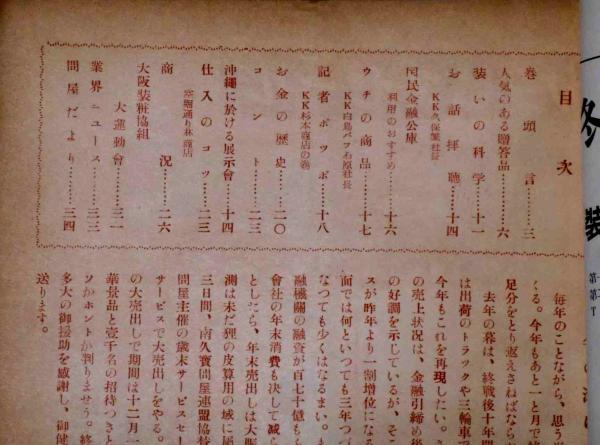 目次
巻頭言………三
人気のある贈答品……六
装いの科学……十一
お話拝聴……十四
KK久保繁社長
国民金融公庫
利用のおすすめ……十六
ウチの商品……十七
KK白鳥パフ石原社長
記者ポツポ……十八
KK杉本商店の巻
お金の歴史……二〇
コント……二三
沖縄に於ける展示會……十四
仕入のコツ……二三
堺筋通り林商店
商況……二六
大阪装粧協組
大運動會……三一
業界ニユース……三三
問屋だより……三四
毎年のことながら、思う
くる。今年もあと一ヵ月で
足分をとり返えさねばなら
去年の暮は、終戦後十年間
は出荷のトラックや三輪車
今年もこれを再現したい。さ
の売上状况は、金融引締め後
の好調を示しているが、そこ
スが昨年より一割增位になる
面では何といつても三年つづ
なつても少くはなるまい。も
融機關の融資が百七十億もら
會社の年末消費も决して減ら
としたら、年末売出しは大賑
測は未だ狸の皮算用の域に屬
三日間、南久寳問屋連盟協賛
問屋主催の歳末サービスセー
サービスで大売出しをやる。
の大売出しで期間は十二月一
華景品と壱千名の招待つきと
ソかホントか判りませう。終
多大の御援助を感謝し、御健
送ります。
冬
装
第
第